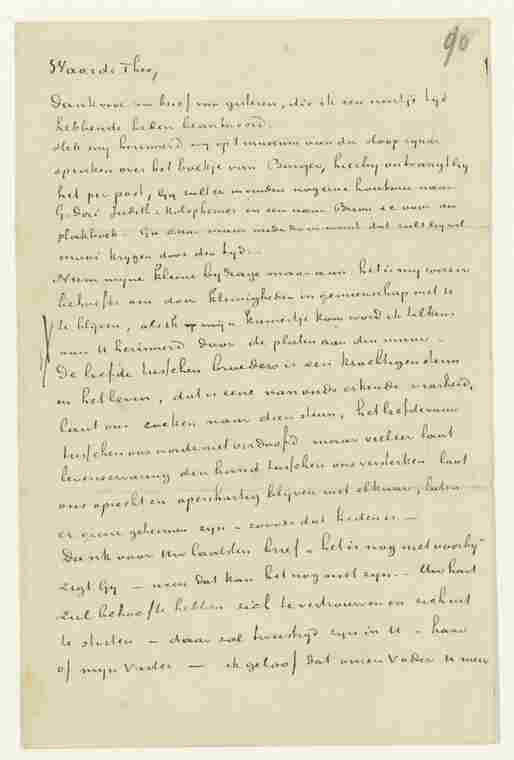 90
Waarde Theo,
Dank voor uw brief van gisteren, die ik een uurtje tijd
hebbende heden beantwoord.
spraken over het boekje van Burger, hierbij ontvangt gij
het per post, Gij zult er in vinden nog eene houtsnede naar
G. Doré Judith & Holophernes en een naar Brion voor uw
plakboek. Ga daar mede dat zult gij
mooi krijgen door den tijd.
Neem mijne kleine bijdrage maar aan het is mij
behoefte om door kleinigheden in gemeenschap met U
te blijven, als ik op mijn kamertje kom word ik telkens
aan U herinnerd door de platen aan den muur.
De liefde tusschen broeders is een krachtigen steun
in het leven, dat is eene van ouds erkende waarheid,
laat ons zoeken naar dien steun, het liefdevuur
tusschen ons worde niet verdoofd maar veeleer laat
levenservaring den band tusschen ons versterken laat
ons oprecht en openhartig blijven met elkaar, laten
er geene geheimen zijn – zooals dat heden is. –
Dank voor Uw laatsten brief – „het is nog niet voorbij”
zegt Gij – neen dat kan het nog niet zijn. – Uw hart
zal behoefte hebben zich te vertrouwen en zich uit
te storten – daar zal tweestrijd zijn in U – haar
of mijn Vader — ik geloof dat onzen Vader U meer